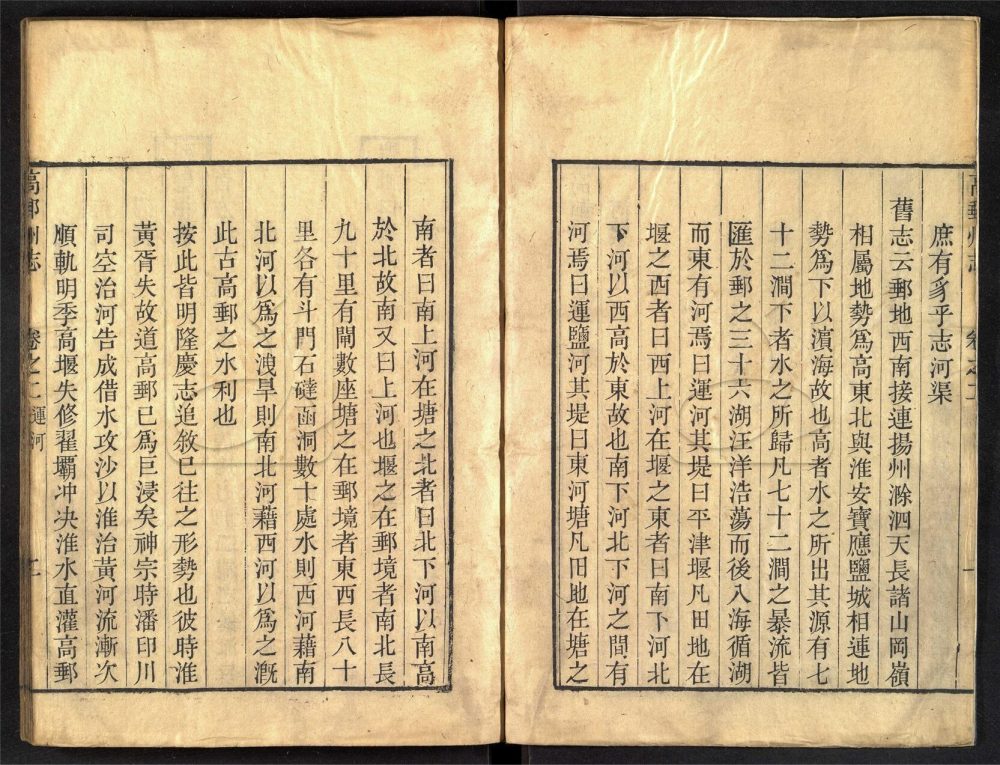 高郵州志 卷之二
庶有豸乎志河渠
舊志云郵地西南接連揚州滁泗天長諸山岡嶺
相屬地勢爲高東北與淮安寶應鹽城相連地
勢爲下以濱海故也高者水之所出其源有七
十二澗下者水之所歸凡七十二澗之暴流皆
匯於郵之三十六湖汪洋浩蕩而後入海循湖
而東有河焉曰運河其堤曰平津堰凡田地在
堰之西者曰西上河在堰之東者曰南下河北
下河以西高於東故也南下河北下河之間有
河焉曰運鹽河其堤曰東河塘凡田地在塘之
南者曰南上河在塘之北者曰北下河以南高
於北故南又曰上河也堰之在郵境者南北長
九十里有閘數座塘之在郵境者東西長八十
里各有斗門石䃮凾洞數十處水則西河藉南
北河以爲之洩旱則南北河藉西河以爲之漑
此古高郵之水利也
按此皆明隆慶志追敘已往之形勢也彼時淮
黃胥失故道高郵已爲巨浸矣神宗時潘印川
司空治河告成借水攻沙以淮治黃河流漸次
順軌明季高堰失修翟壩冲决淮水直灌高郵
高郵州志 卷之二 運河 二